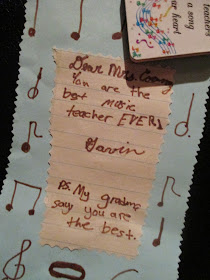 teachers
a song
heart
Dear Mrs.
You are the
best music
teacher EVER!
Gavin
PS. My
say you are
the best.